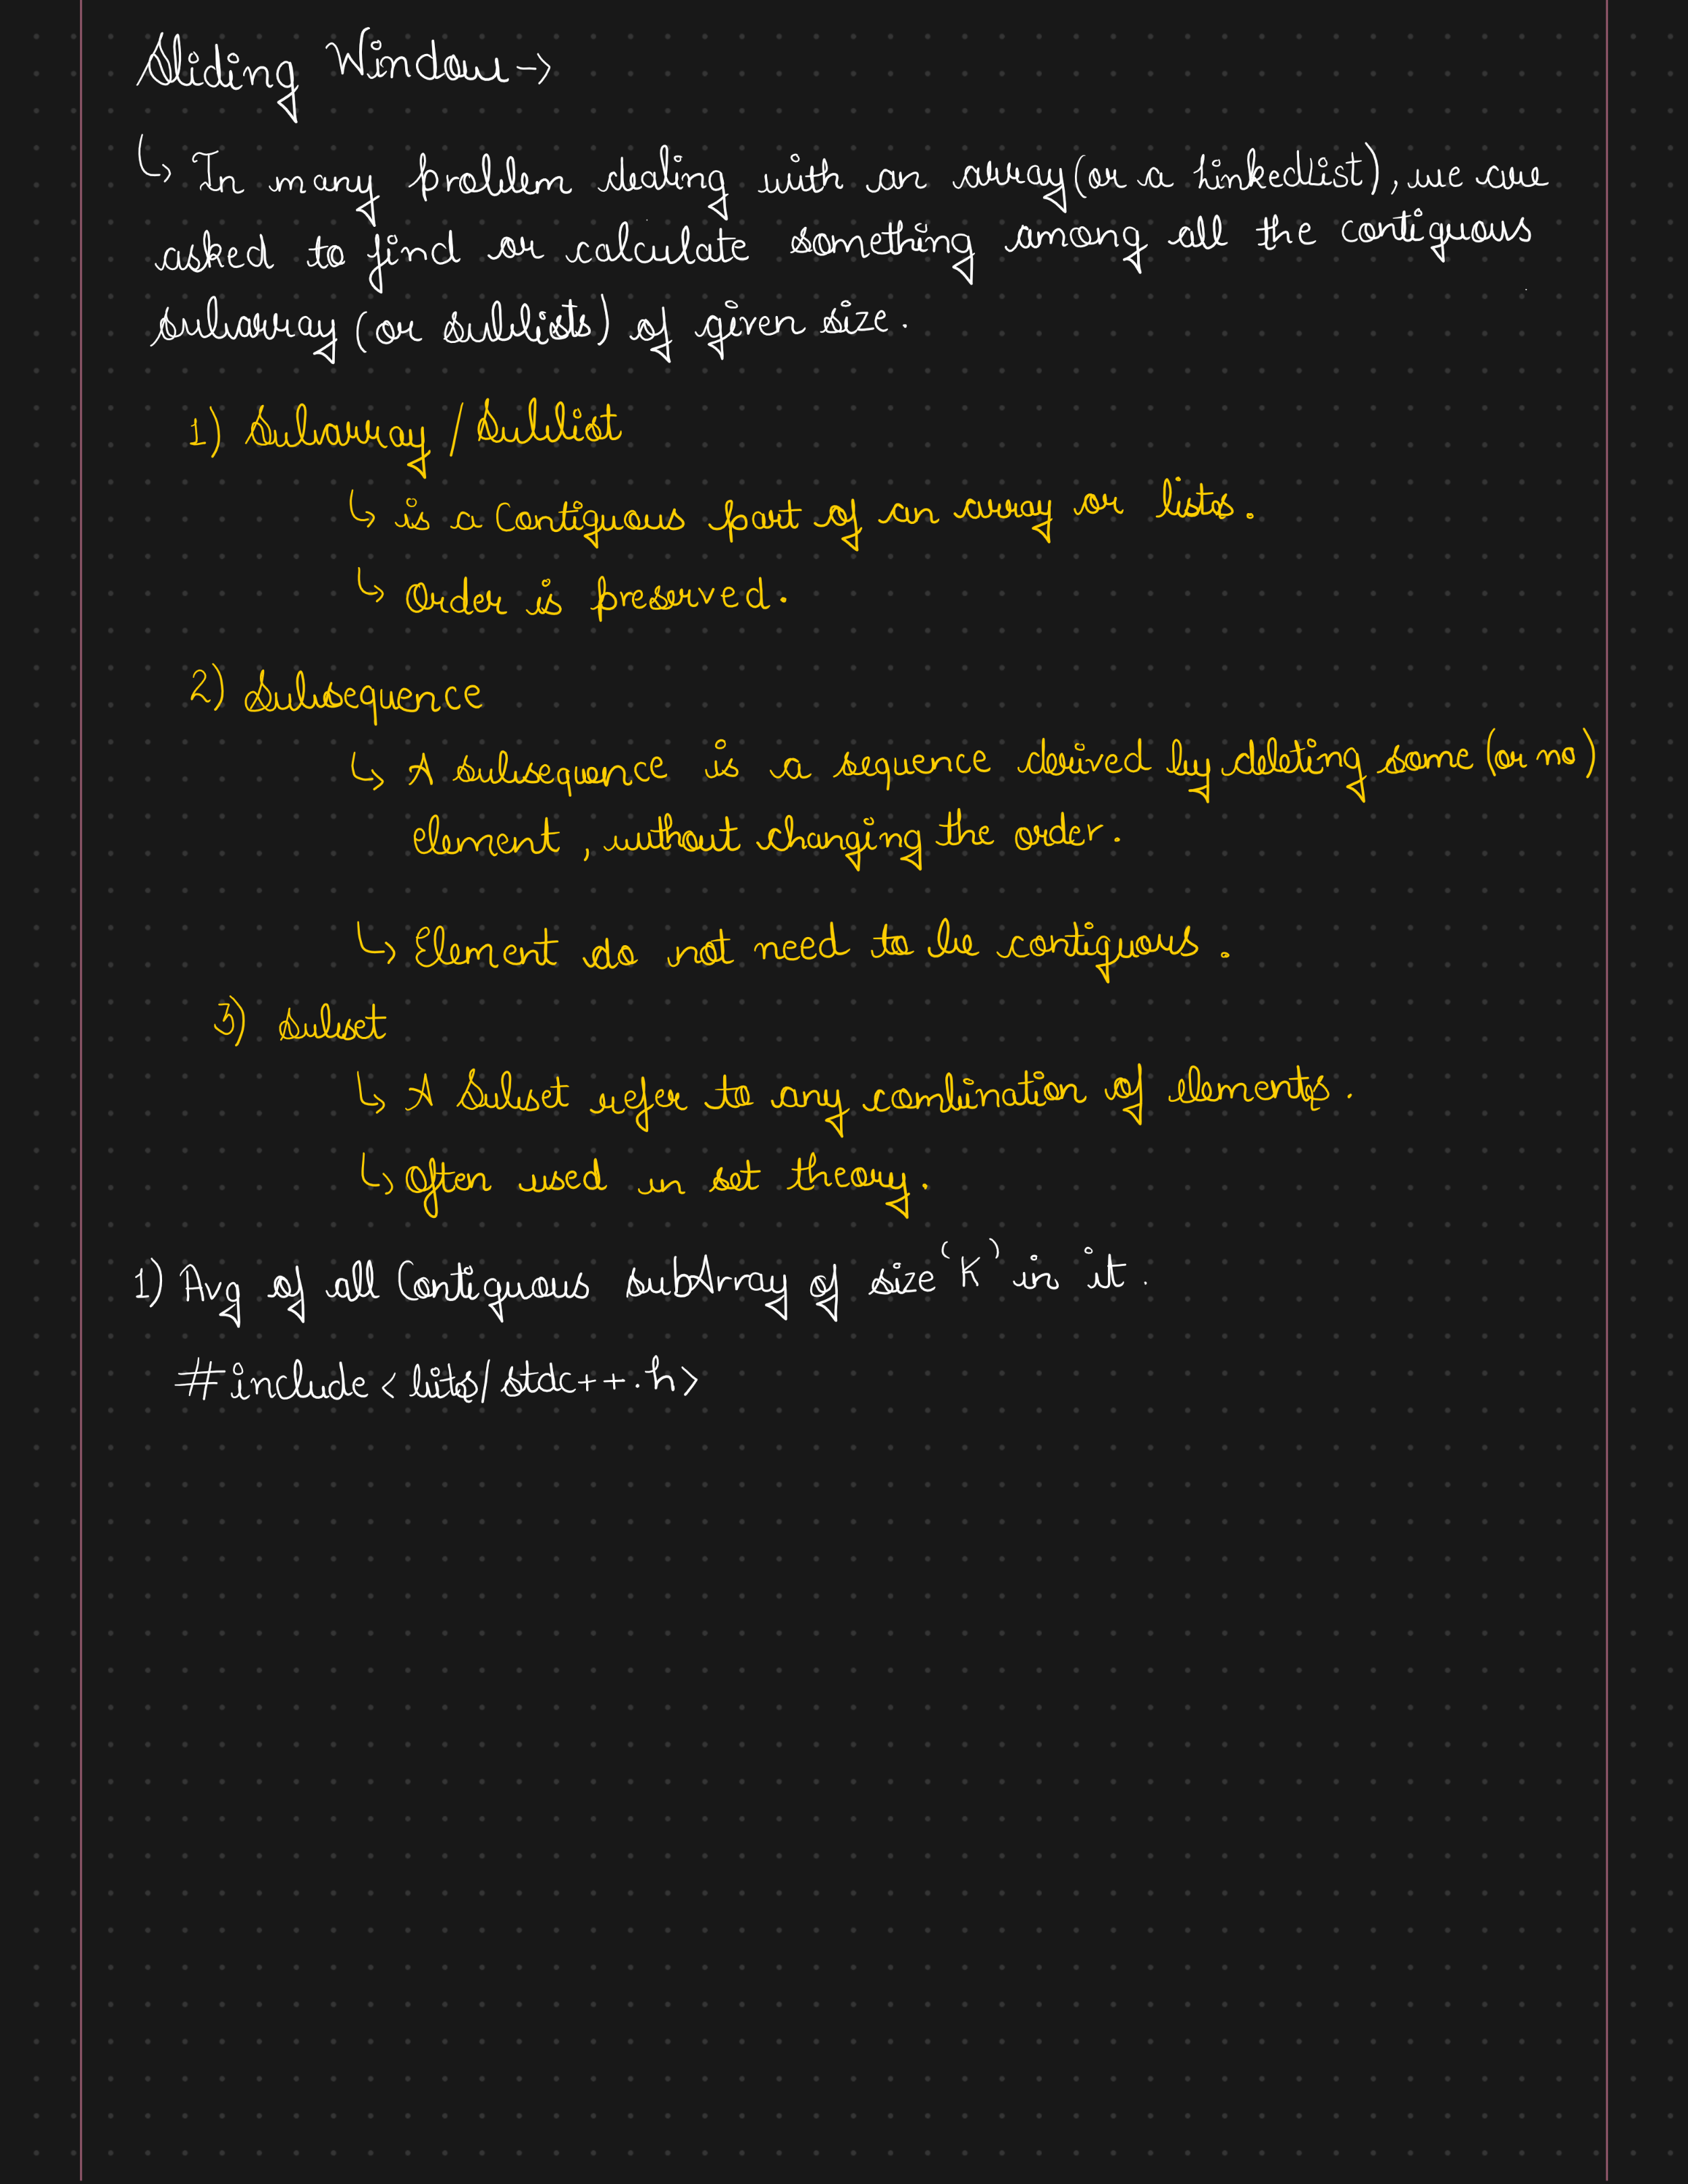 Sliding Window ->
↳ In many problem dealing with an array (or a LinkedList), we are
asked to find or calculate something among all the contiguous
subarray (or sublists) of given size.
1) Subarray / Sublist
↳ is a Contiguous part of an array or lists.
↳ Order is preserved.
2) Subsequence
↳ A subsequence is a sequence derived by deleting some (or no)
element, without changing the order.
↳ Element do not need to be contiguous.
3) subset
↳ A Subset refer to any combination of elements.
↳ Often used in set theory.
1) Avg of all Contiguous subArray of size 'K' in it.
#include <bits/stdc++.h>